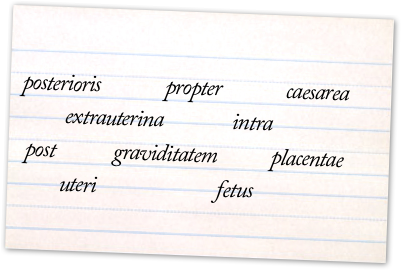 posterioris propter caesarea
extrauterina intra
post graviditatem placentae
uteri fetus